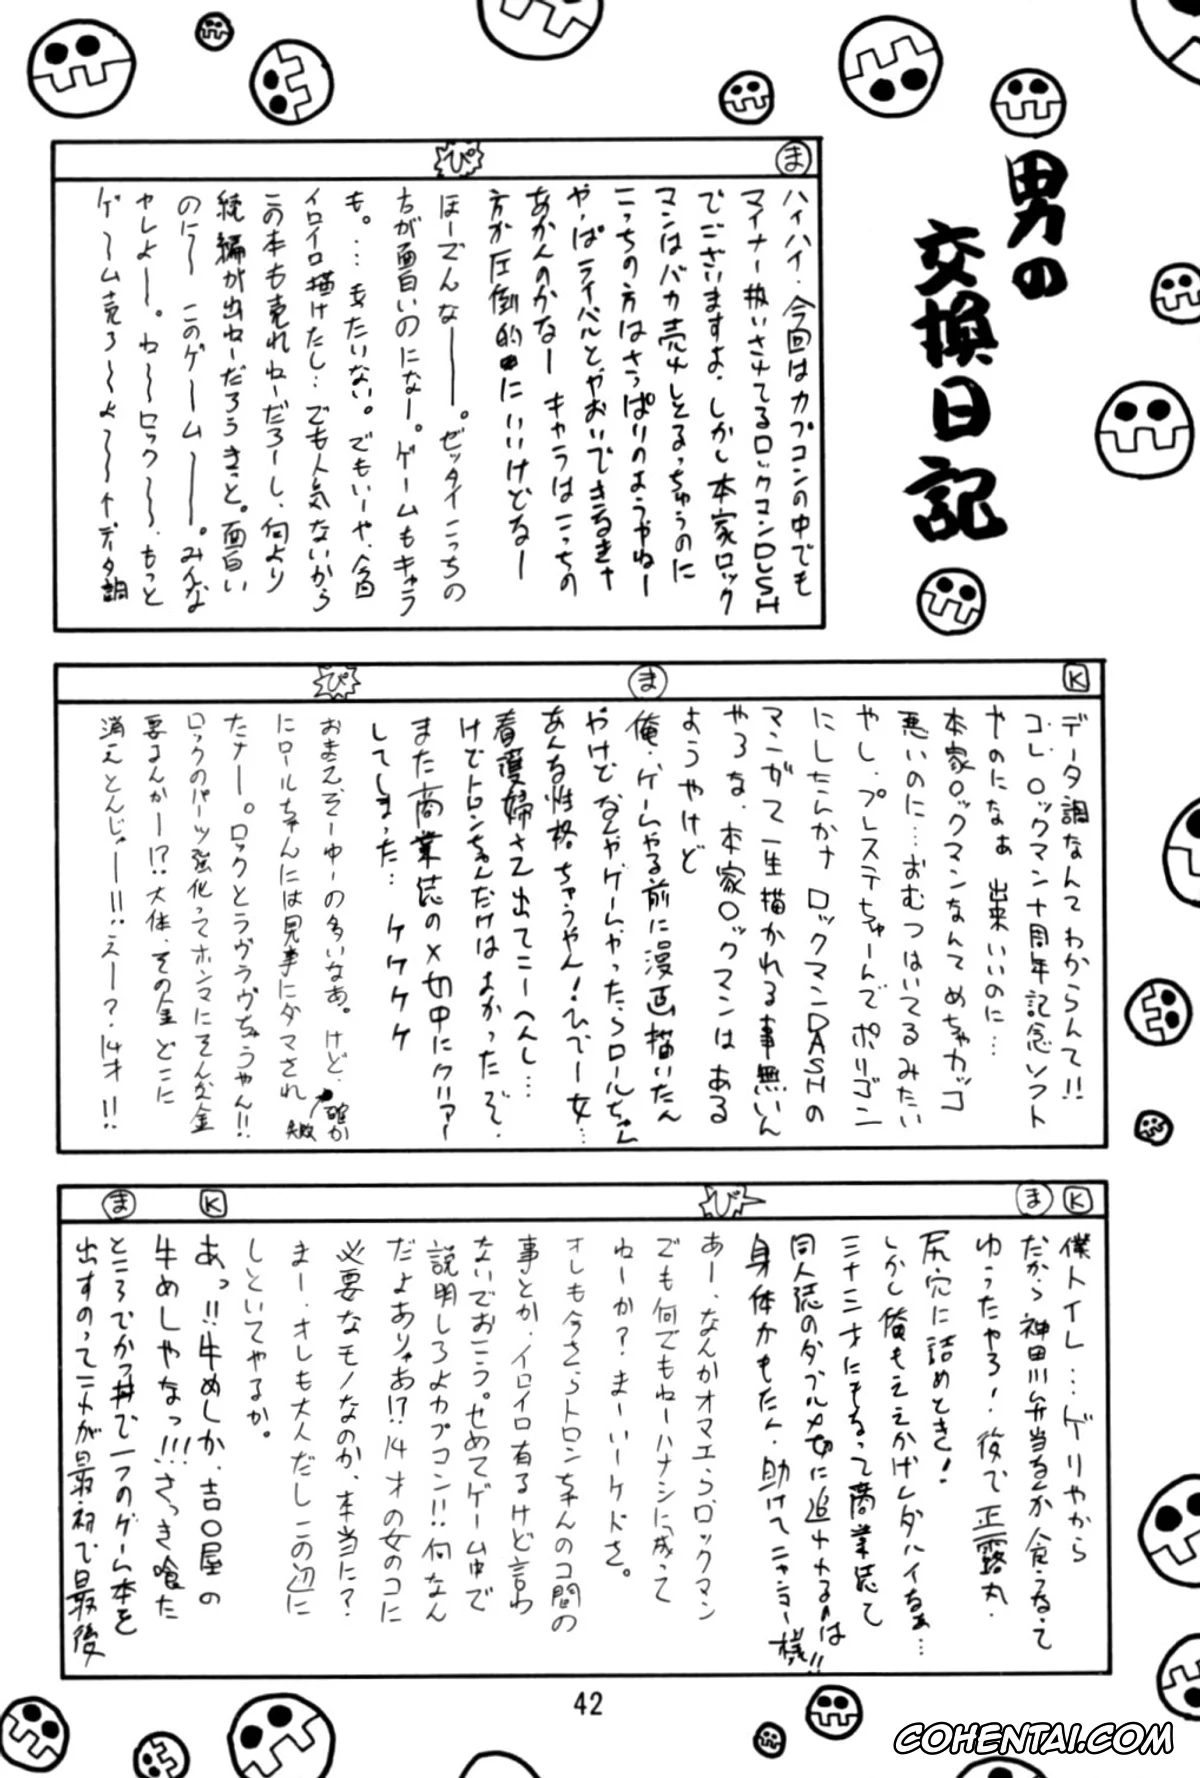 男の
交換日記
ま
ハイハイ、今回はカプコンの中でも
マイナー扱いされてるロックマンDASH
でございますよ。しかし本家ロック
マンはバカ売れしとるっちゅうのに
こっちの方はさっぱりのようやねー
や・ぱライバルとやおいできるきャ
あかんのかなー キャラはこっちの
方が圧倒的にいいけどなー
ぴ
ほーでんなー。ゼッタイこっちの
ちが面白いのになー。ゲームもキャラ
も。…もったいない。でもいーや、今回
イロイロ描けたし…でも人気ないから
この本も売れねーだろーし、何より
続編が出ねーだろうきっと。面白い
のに〜 このゲーム〜。みんな
やしよ〜。ね〜ロック〜、もっと
ゲ〜ム売ろ〜よ〜〜↑データ調
K
データ調なんてわからんて!!
コレ ロックマン十周年記念ソフト
やのになぁ 出来いいのに…
本家ロックマンなんてめちゃカッコ
悪いのに…おむつはいてるみたい
やし、プレステちゃーんでポリゴン
にしたんかナ ロックマンDASHの
マンガて一生描かれる事無いん
やろな、本家ロックマンはある
ようやけど
ま
俺、ゲームやる前に漫画描いたん
やけどなんやゲームやったらロールちゃん
あんな性格ちゃうやん!ひでー女…
看護婦さえ出てこーへんし…
けどトロンちゃんだけはよかったぞ。
また商業誌の〆切中にクリアー
してしまった… ケケケケ
ぴ
おまえそーゆーの多いなあ。けど、確か
にロールちゃんには見事にダマされ
失敗
たナー。ロックとラヴラヴちゃうやん!!
ロックのパーツ強化ってホンマにそんな金
要るんかー!?大体、その金どこに
消えとんじゃー!!!えー?、14才!!
K
僕トイレ…ゲリやから
ま
だから神田川弁当なんか食うなって
ゆうったやろ!後で正露丸、
尻穴に詰めとき!
しかし俺もええかげんダハイなぁ…
三十三才にもなって商業誌と
同人誌のダブル〆切に追われるのは
身体がもたん、助けてニャンコー様!!
ぴ
あー、なんかオマエら、ロックマン
でも何でもねーハナシに成って
ねーか?まーいーケドさ。
オレも今さらトロンちゃんのコ間の
事とか、イロイロ有るけど言わ
ないでおこう。せめてゲーム中で
説明しろよカプコン!!何なん
だよありゃあ!?14才の女のコに
必要なモノなのか、本当に?
まー、オレも大人だしこの辺に
しといてやるか。
K
あっ!!牛めしか、吉○屋の
牛めしやなっ!!!さっき喰った
ま
ところでかつ丼で一つのゲーム本を
出すのってこれが最初で最後
42
COHENTAI.COM